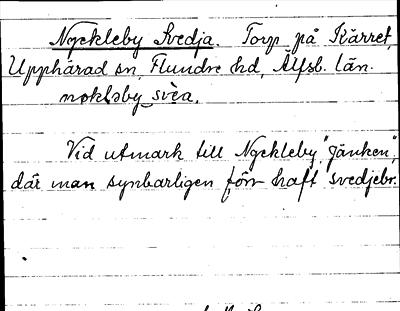 Nyckleby Svedja. Torp på Kärret,
Upphärad sn, Flundre hd, Älfsb. län.
nokləby svèa.
Vid utmark till Nyckleby, "Jänken",
där man synbarligen förr haft svedjebr.